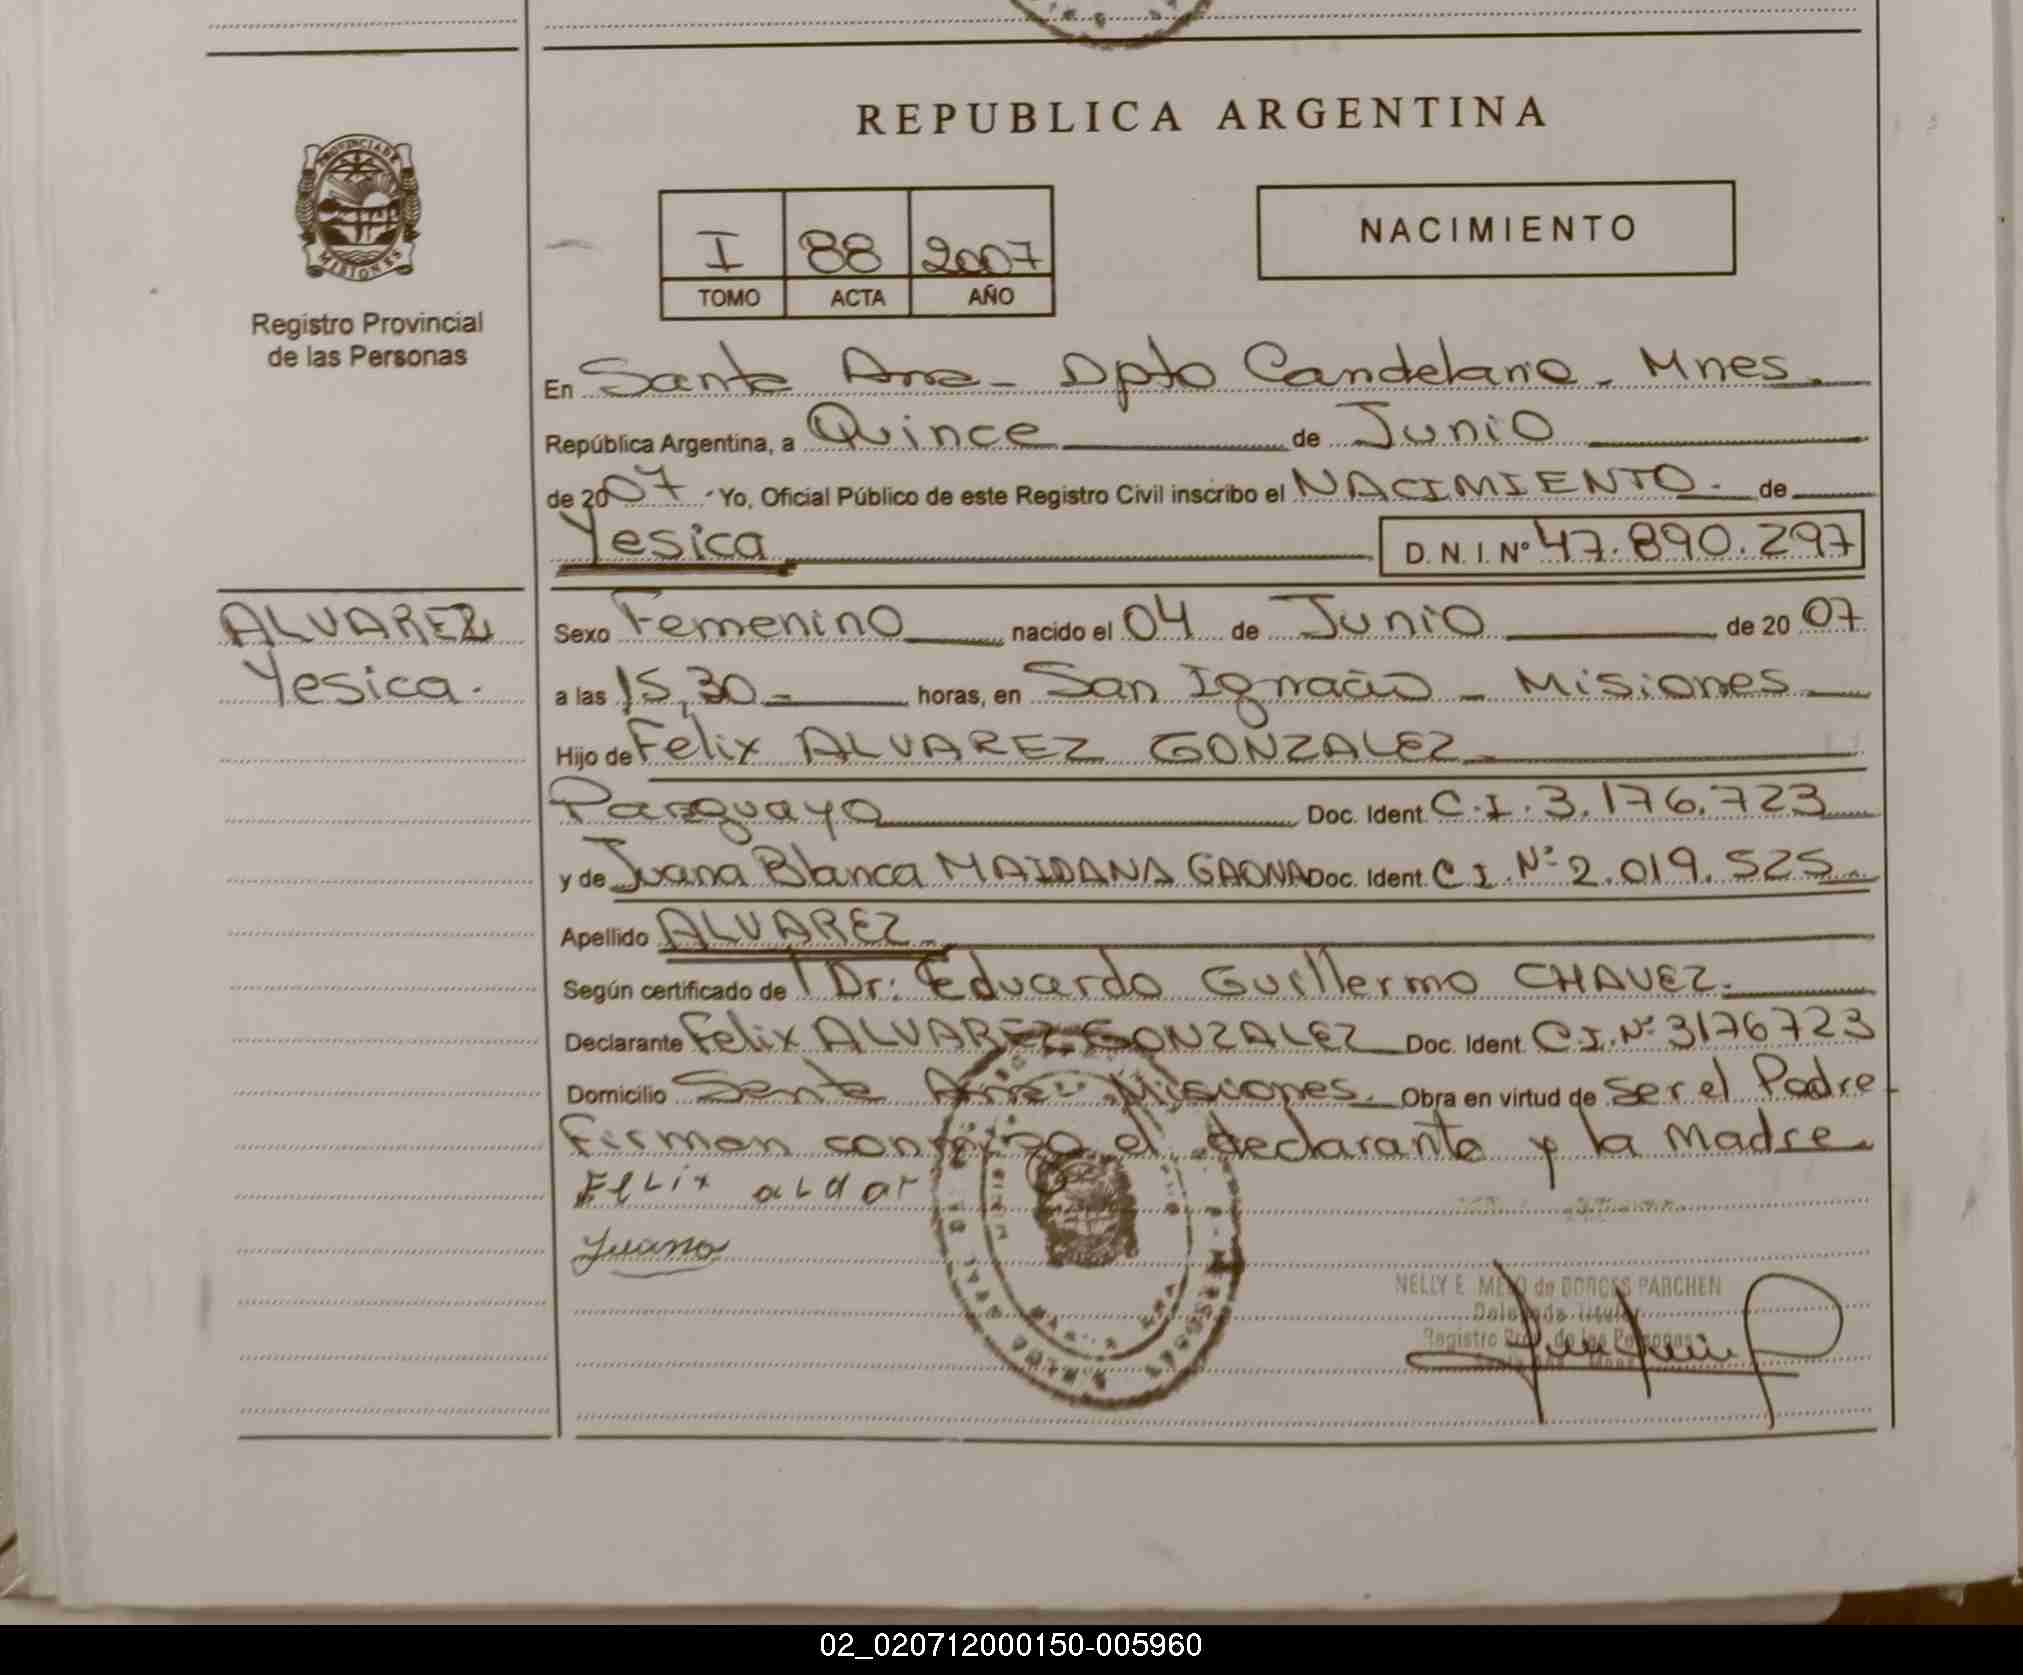 REPUBLICA ARGENTINA
PROVINCIA DE
MISIONES
Registro Provincial
de las Personas
I 88 2007
TOMO ACTA AÑO
NACIMIENTO
En Santa Ana - Dpto Candelaria - Mnes.
República Argentina, a Quince de Junio
de 2007 - Yo, Oficial Público de este Registro Civil inscribo el NACIMIENTO. de
Yesica D.N.I. Nº 47.890.297
ALVAREZ
Yesica.
Sexo Femenino nacido el 04 de Junio de 2007
a las 15,30 - horas, en San Ignacio - Misiones
Hijo de Felix ALVAREZ GONZALEZ
Paraguayo Doc. Ident. C.I. 3.176.723
y de Juana Blanca MAIDANA GAONA Doc. Ident. C I. Nº 2.019.525
Apellido ALVAREZ
Según certificado de Dr: Eduardo Guillermo CHAVEZ.
Declarante Felix ALVAREZ GONZALEZ Doc. Ident. C.I. Nº 3176723
Domicilio Santa Ana - Misiones. Obra en virtud de ser el Padre
Firman conmigo el declarante y la Madre
FELIX
Juana
NELLY E. MELO de BORGES PARCHEN
Delegada Titular
Registro Prov. de las Personas
02_020712000150-005960